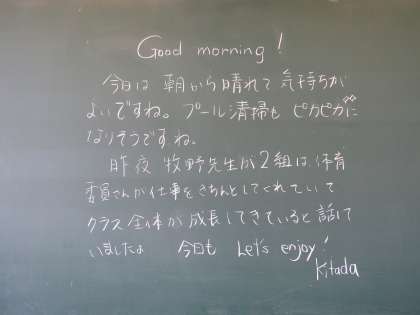 Good morning!
今日は 朝から晴れて 気持ちが
よいですね。 プール清掃も ピカピカに
なりそうですね。
昨夜 牧野先生が 2組は、体育
委員さんが仕事をきちんとしてくれていて
クラス全体が成長してきていると話して
いましたよ 今日も Let's enjoy!
Kitada